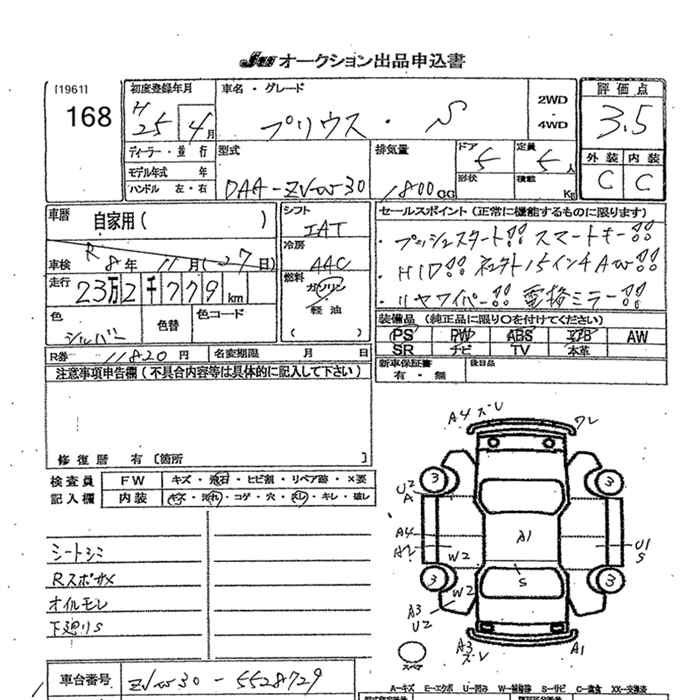 JU オークション出品申込書
[1961]
168
初度登録年月
H
25 4月
車名・グレード
プリウス・S
2WD
・
4WD
評価点
3.5
外装 内装
C C
ディーラー・並行
モデル年式 年
ハンドル 左・右
型式
DAA-ZVW30
排気量
1800CC
ドア
5
形状
定員
5人
積載
Kg
車歴
自家用( )
車検 R8年11月(27日)
走行 23万2千779km
色
シルバー
色替
色コード
R券 11820円
名変期限 月 日
シフト
IAT
冷房
AAC
燃料
ガソリン
軽油
( )
セールスポイント(正常に機能するものに限ります)
・プッシュスタート!! スマートキー!!
・HID!! 15インチAW!!
・リヤワイパー!! 電格ミラー!!
装備品(純正品に限り○を付けてください)
PS PW ABS エアB AW
SR ナビ TV 本革
新車保証書
有・無
後日品
注意事項申告欄(不具合内容等は具体的に記入して下さい)
修復歴 有[箇所
検査員
記入欄
FW キズ・飛石・ヒビ割・リペア跡・×要
内装 キズ・汚れ・コゲ・穴・スレ・キレ・破レ
シートシミ
Rスポサメ
オイルモレ
下廻りS
車台番号 ZVW30-5528729
A4 ズレ
ワレ
3 3
U2
A
A4
A2
W2
A1
U1
S
3 3
S
W2
A3
U2
A3
ズレ
A1
スペア
A―キズ E―エクボ U―凹み W―補修跡 S―サビ C―腐食 XX―交換済